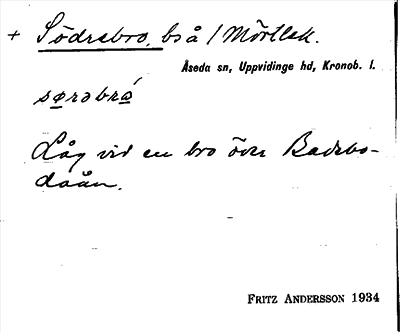 + Södrabro, bs å / Mörtlek.
Åseda sn, Uppvidinge hd, Kronob. l.
sørəbrá
Låg vid en bro över Badebo-
daån.
FRITZ ANDERSSON 1934